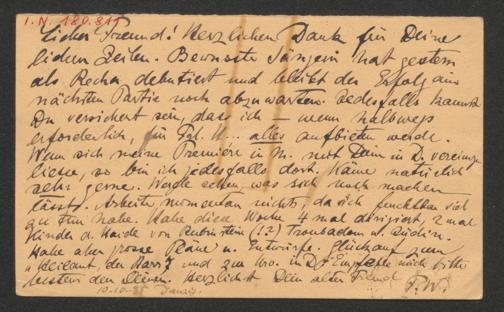 I.N. 180.811
Lieber Freund! Herzlichen Dank für Deine
lieben Zeilen. Bewusste Sängerin hat gestern
als Recha debutiert und bleibt der Erfolg am
nächsten Partie noch abzuwarten. Jedesfalls kannst
Du versichert sein, dass ich – wenn halbwegs
erforderlich, für Frl. K... alles aufbieten werde.
Wenn sich meine Première in M. mit Dein in D. vereinigen
liesse, so bin ich jedesfalls dort. Käme natürlich
sehr gerne. Werde sehen was sich noch machen
lässt. Arbeite momentan nichts, da ich zu
tun habe. Habe diese Woche 4 mal dirigiert, 2 mal
Kinder d. Haide von Rubinstein (!?) Troubadour u. Jüdin.
Habe aber grosse Pläne u. Entwürfe. Glückauf zum
Heilant, der und zur 100. in D.! Empfehle mich bitte
bestens den Deinen. Herzlichst Dein alter Freund
10.10. Danzig